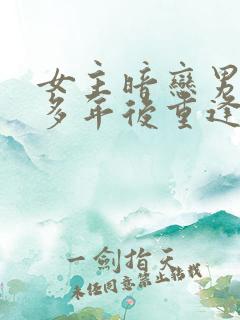 女主暗戀男
多年後重逢
一劍指天
未經同意禁止轉載